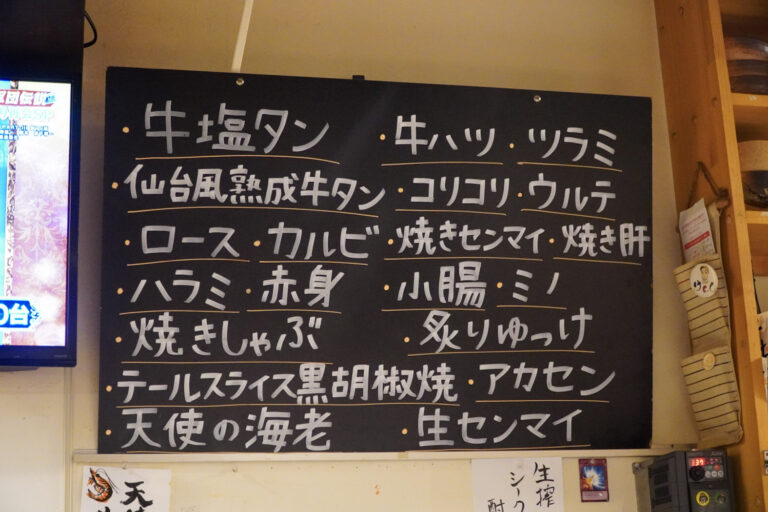 ・牛塩タン ・牛ハツ ・ツラミ
・仙台風熟成牛タン ・コリコリ ・ウルテ
・ロース ・カルビ ・焼きセンマイ ・焼き肝
・ハラミ ・赤身 ・小腸 ・ミノ
・焼きしゃぶ ・炙りゆっけ
・テールスライス黒胡椒焼 ・アカセン
・天使の海老 ・生センマイ
団伝説
0台
天使
生搾
シーク
酎